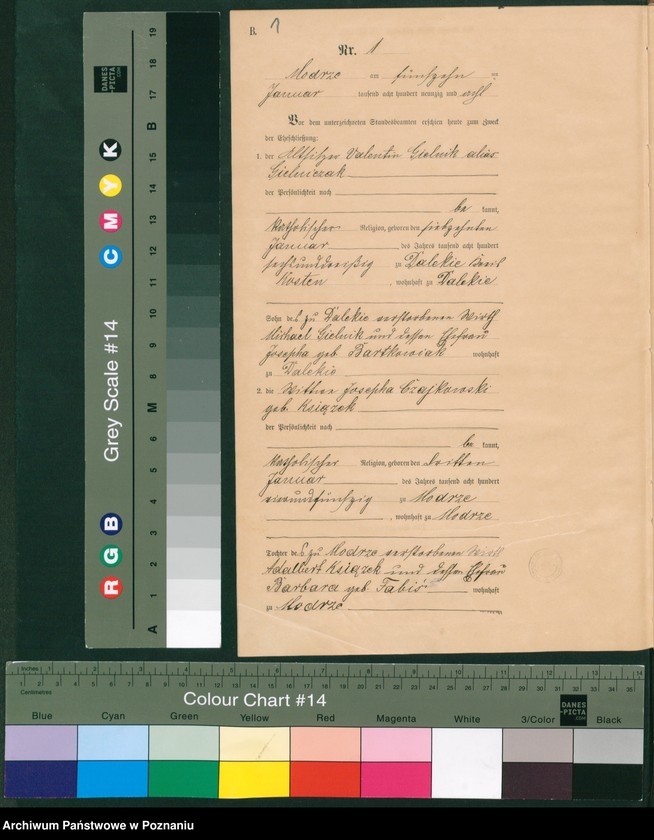 B. 1
Nr. 1
Modrze am fünfzehn ten
Januar tausend acht hundert neunzig und acht
Vor dem unterzeichneten Standesbeamten erschien heute zum Zweck
der Eheschließung:
1. der Altsitzer Valentin Gielnik alias
Gielniczak
der Persönlichkeit nach
be kannt,
katholischer Religion, geboren den siebzehnten
Januar des Jahres tausend acht hundert
sechsunddreißig zu Dalekie Kreis
Kosten, wohnhaft zu Dalekie
Sohn des zu Dalekie verstorbenen Wirth
Michael Gielnik und dessen Ehefrau
Josepha geb. Bartkowiak wohnhaft
zu Dalekie
2. die Wittwe Josepha Czajkowski
geb. Ksiązek
der Persönlichkeit nach
be kannt,
katholischer Religion, geboren den dritten
Januar des Jahres tausend acht hundert
vierundfünfzig zu Modrze
, wohnhaft zu Modrze
Tochter des zu Modrze verstorbenen Wirth
Adalbert Ksiązek und dessen Ehefrau
Barbara geb. Tabis wohnhaft
zu Modrze
Grey Scale #14
DANES
-PICTA
.COM
C M Y K
R G B
A 1 2 3 4 5 6 M 8 9 10 11 12 13 14 15 B 17 18 19
Inches 1 2 3 4 5 6 7 8 9 10 11 12 13 14
Centimetres 1 2 3 4 5 6 7 8 9 10 11 12 13 14 15 16 17 18 19 20 21 22 23 24 25 26 27 28 29 30 31 32 33 34 35
Colour Chart #14
DANES
-PICTA
.COM
Blue Cyan Green Yellow Red Magenta White 3/Color Black
Archiwum Państwowe w Poznaniu